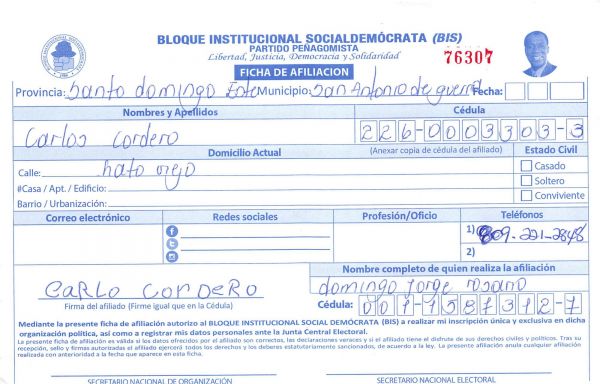 BLOQUE INSTITUCIONAL SOCIALDEMÓCRATA (BIS)
PARTIDO PEÑAGOMISTA
Libertad, Justicia, Democracia y Solidaridad
76307
FICHA DE AFILIACION
Provincia: Santo domingo Este Municipio: San Antonio de guerra Fecha:
Nombres y Apellidos Cédula
Carlos Cordero 226-0003303-3
Domicilio Actual (Anexar copia de cédula del afiliado) Estado Civil
Calle: hato viejo Casado
#Casa / Apt. / Edificio: Soltero
Barrio / Urbanización: Conviviente
Correo electrónico Redes sociales Profesión/Oficio Teléfonos
1) 809-221-2848
2)
Nombre completo de quien realiza la afiliación
CARLO CORDERO domingo Jorge rosario
Firma del afiliado (Firme igual que en la Cédula) Cédula: 001-1587312-7
Mediante la presente ficha de afiliación autorizo al BLOQUE INSTITUCIONAL SOCIAL DEMÓCRATA (BIS) a realizar mi inscripción única y exclusiva en dicha
organización política, así como a registrar mis datos personales ante la Junta Central Electoral.
La presente ficha de afiliación es válida si los datos ofrecidos por el afiliado son correctos, las declaraciones veraces y si el afiliado tiene el disfrute de sus derechos civiles y políticos. Tras su
recepción, sello y firmas autorizadas el afiliado ejercerá todos los derechos y los deberes estatutariamente sancionados, de acuerdo a la ley. La presente afiliación anula cualquier afiliación
realizada con anterioridad a la fecha que aparece en esta ficha.
SECRETARIO NACIONAL DE ORGANIZACIÓN SECRETARIO NACIONAL ELECTORAL